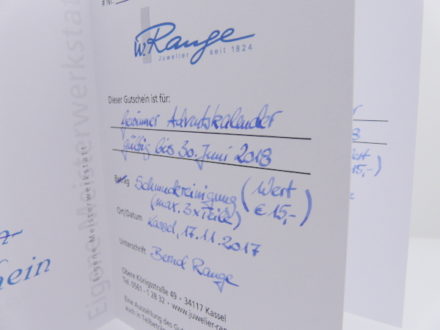 # Nr.
W. Range
Juwelier seit 1824
Dieser Gutschein ist für:
Gewinner Adventskalender
gültig bis 30. Juni 2018
Betrag Schmuckreinigung (Wert
(max. 3x Teile) € 15,-)
Ort/Datum Kassel, 17.11.2017
Unterschrift Bernd Range
Obere Königsstraße 49 - 34117 Kassel
Tel. 0561 - 1 28 32 • www.juwelier-ra
Eine Auszahlung des Gu
Eigene Meisterwerkstat